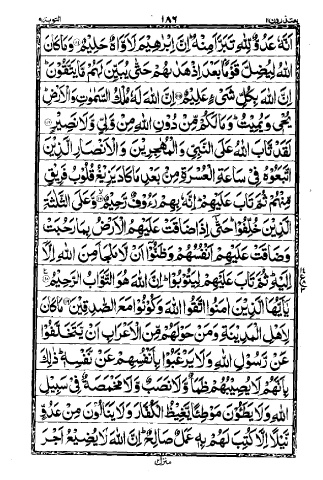 يعتذرون ١١ ١٨٦ التوبة ٩
اَنَّهٗ عَدُوٌّ لِّلّٰهِ تَبَرَّاَ مِنْهُ ؕ اِنَّ اِبْرٰهِیْمَ لَاَوَّاهٌ حَلِیْمٌ وَمَا كَانَ
اللّٰهُ لِیُضِلَّ قَوْمًۢا بَعْدَ اِذْ هَدٰىهُمْ حَتّٰی یُبَیِّنَ لَهُمْ مَّا یَتَّقُوْنَ ؕ
اِنَّ اللّٰهَ بِكُلِّ شَیْءٍ عَلِیْمٌ اِنَّ اللّٰهَ لَهٗ مُلْكُ السَّمٰوٰتِ وَالْاَرْضِ ؕ
یُحْیٖ وَیُمِیْتُ ؕ وَمَا لَكُمْ مِّنْ دُوْنِ اللّٰهِ مِنْ وَّلِیٍّ وَّلَا نَصِیْرٍ
لَقَدْ تَّابَ اللّٰهُ عَلَی النَّبِیِّ وَالْمُهٰجِرِیْنَ وَالْاَنْصَارِ الَّذِیْنَ
اتَّبَعُوْهُ فِیْ سَاعَةِ الْعُسْرَةِ مِنْۢ بَعْدِ مَا كَادَ یَزِیْغُ قُلُوْبُ فَرِیْقٍ
مِّنْهُمْ ثُمَّ تَابَ عَلَیْهِمْ ؕ اِنَّهٗ بِهِمْ رَءُوْفٌ رَّحِیْمٌ وَّعَلَی الثَّلٰثَةِ
الَّذِیْنَ خُلِّفُوْا ؕ حَتّٰۤی اِذَا ضَاقَتْ عَلَیْهِمُ الْاَرْضُ بِمَا رَحُبَتْ
وَضَاقَتْ عَلَیْهِمْ اَنْفُسُهُمْ وَظَنُّوْۤا اَنْ لَّا مَلْجَاَ مِنَ اللّٰهِ اِلَّاۤ
اِلَیْهِ ؕ ثُمَّ تَابَ عَلَیْهِمْ لِیَتُوْبُوْا ؕ اِنَّ اللّٰهَ هُوَ التَّوَّابُ الرَّحِیْمُ
یٰۤاَیُّهَا الَّذِیْنَ اٰمَنُوا اتَّقُوا اللّٰهَ وَكُوْنُوْا مَعَ الصّٰدِقِیْنَ مَا كَانَ
لِاَهْلِ الْمَدِیْنَةِ وَمَنْ حَوْلَهُمْ مِّنَ الْاَعْرَابِ اَنْ یَّتَخَلَّفُوْا
عَنْ رَّسُوْلِ اللّٰهِ وَلَا یَرْغَبُوْا بِاَنْفُسِهِمْ عَنْ نَّفْسِهٖ ؕ ذٰلِكَ
بِاَنَّهُمْ لَا یُصِیْبُهُمْ ظَمَاٌ وَّلَا نَصَبٌ وَّلَا مَخْمَصَةٌ فِیْ سَبِیْلِ
اللّٰهِ وَلَا یَطَـُٔوْنَ مَوْطِئًا یَّغِیْظُ الْكُفَّارَ وَلَا یَنَالُوْنَ مِنْ عَدُوٍّ
نَّیْلًا اِلَّا كُتِبَ لَهُمْ بِهٖ عَمَلٌ صَالِحٌ ؕ اِنَّ اللّٰهَ لَا یُضِیْعُ اَجْرَ
منزل